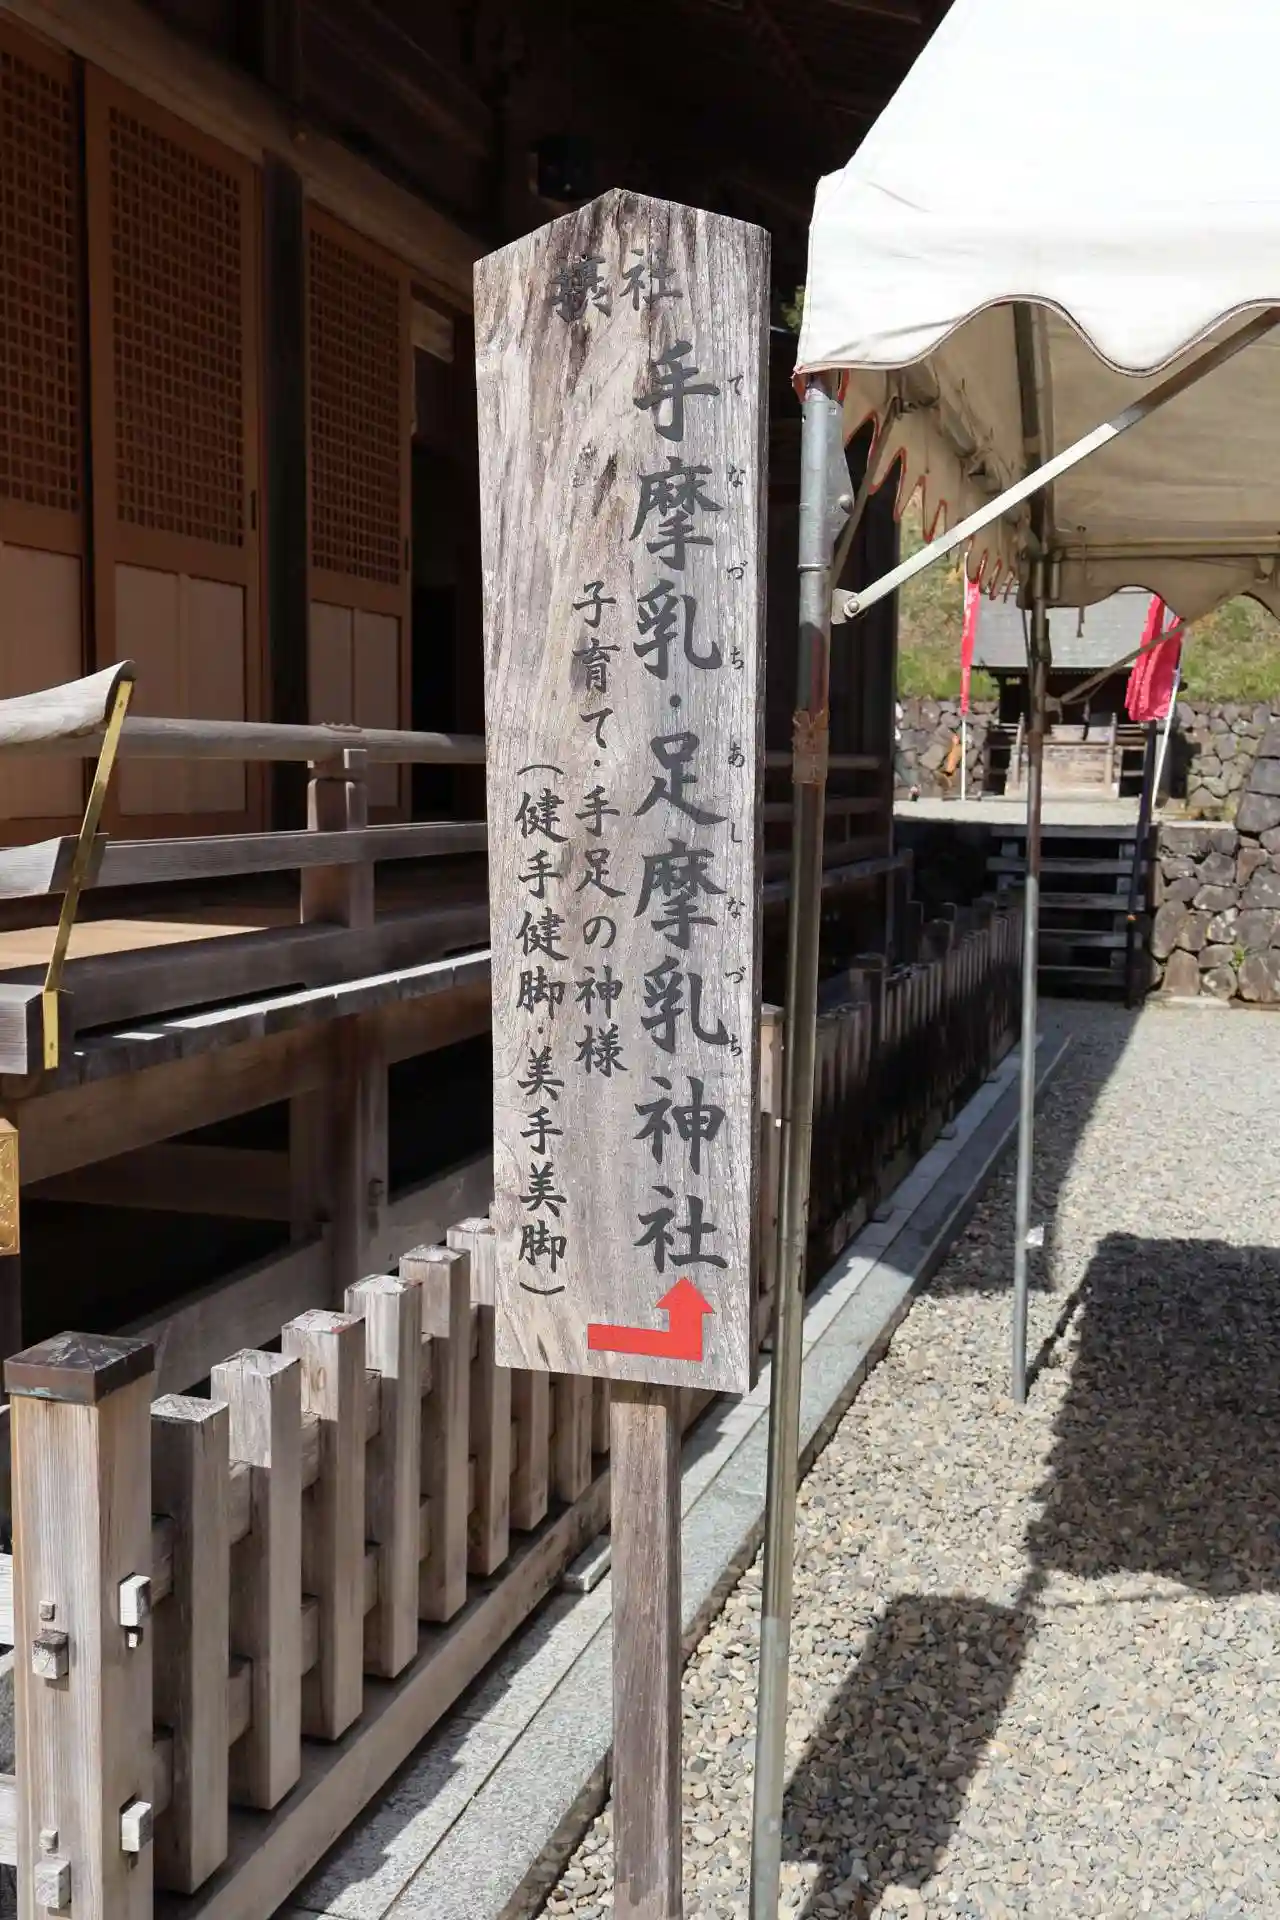 摂社
手摩乳・足摩乳神社
てなづち あしなづち
子育て・手足の神様
（健手健脚・美手美脚）